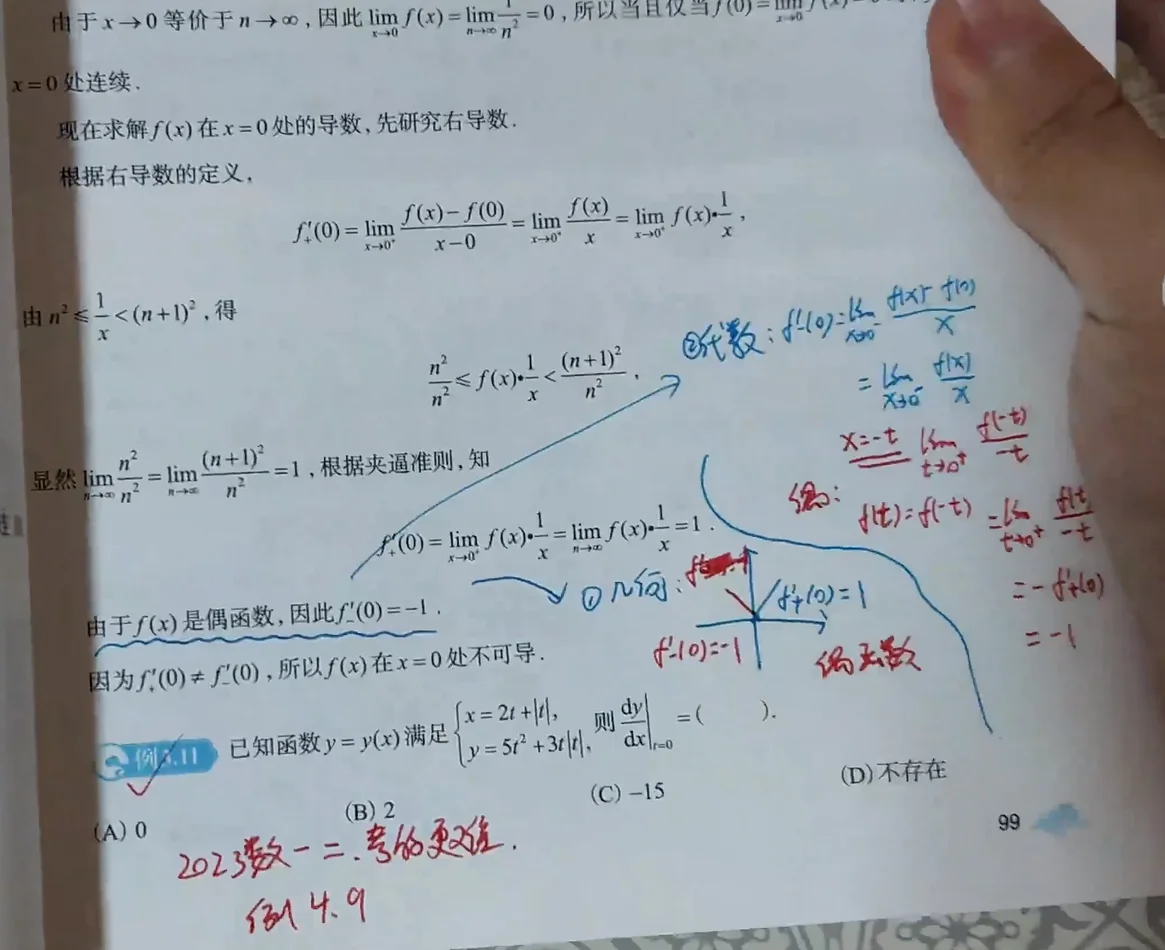 由于 x→0 等价于 n→∞，因此 lim_{x→0} f(x) = lim_{n→∞} 1/n² = 0，所以当且仅当 f(0) = lim_{x→0}
x = 0 处连续.
现在求解 f(x) 在 x = 0 处的导数，先研究右导数.
根据右导数的定义，
f′₊(0) = lim_{x→0⁺} (f(x) − f(0))/(x − 0) = lim_{x→0⁺} f(x)/x = lim_{x→0⁺} f(x)•1/x，
由 n² ≤ 1/x < (n+1)²，得
n²/n² ≤ f(x)•1/x < (n+1)²/n²，
显然 lim_{n→∞} n²/n² = lim_{n→∞} (n+1)²/n² = 1，根据夹逼准则，知
f′₊(0) = lim_{x→0⁺} f(x)•1/x = lim_{n→∞} f(x)•1/x = 1.
由于 f(x) 是偶函数，因此 f′₋(0) = −1.
因为 f′₊(0) ≠ f′₋(0)，所以 f(x) 在 x = 0 处不可导.
②代数：f′₋(0) = lim_{x→0⁻} (f(x) − f(0))/x
= lim_{x→0⁻} f(x)/x
x=−t lim_{t→0⁺} f(−t)/−t
偶：f(t) = f(−t) = lim_{t→0⁺} f(t)/−t
= −f′₊(0)
= −1
①几何：
f′₊(0) = 1
f′₋(0) = −1
偶函数
例3.11 已知函数 y = y(x) 满足 { x = 2t + |t|, y = 5t² + 3t|t|, 则 dy/dx|_{t=0} = (　　).
(A) 0 (B) 2 (C) −15 (D) 不存在
2023数一二.考的更难.
例4.9
99